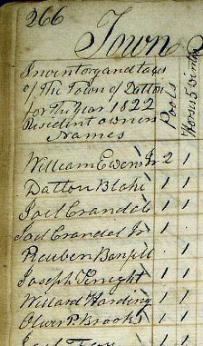 266
Town
Inventory and taxes
of The Town of Dalton
for The Year 1822
Resident owners
Names
Pools
Horses 5 winters
William Ewen Jr 2 1
Dalton Blake 1 1
Joel Crandel 1 1
Joel Crandel Jr 1 1
Reuben Banfill 1 1
Joseph Knight 1 1
Willard Harding 1 1
Oliver P Brooks 1 1